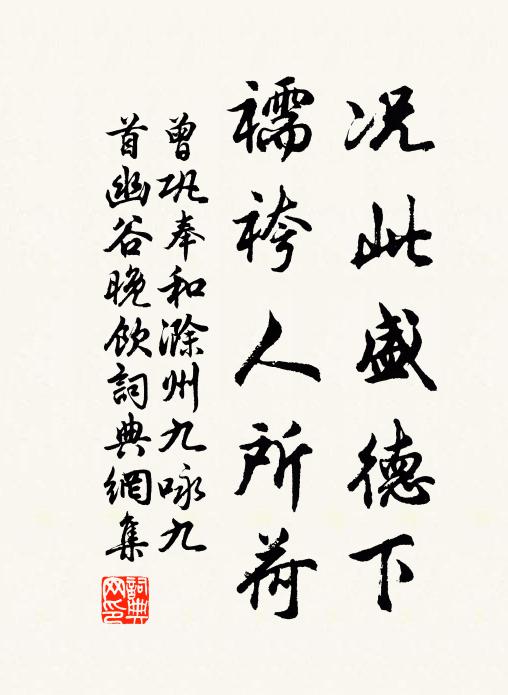 况此盛德下
襦袴人所荷
曾巩奉和滁州九咏九
首幽谷晚饮詞典網集
詞典
网印